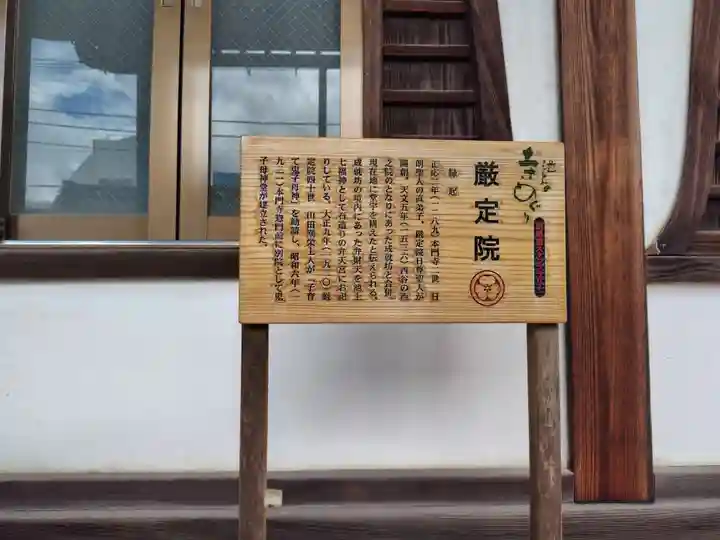 池上
まちめぐり
厳定院
縁起
正応二年(一二八九)本門寺二世 日
朗聖人の直弟子、厳定院日尊聖人が
開創。天文五年(一五三六)西谷の西
之院のとなりにあった成就坊と合併、
現在地に堂宇を構えたと伝えられる。
成就坊の境内にあった弁財天を池上
七福神として石造りの弁天宮にお祀
りしている。大正九年(一九二〇)厳
定院四十世 山田 上人が「子育
て鬼子母神」を勧請し、昭和六年(一
九三一)本門寺惣門前に別院として鬼
子母神堂が建立された。